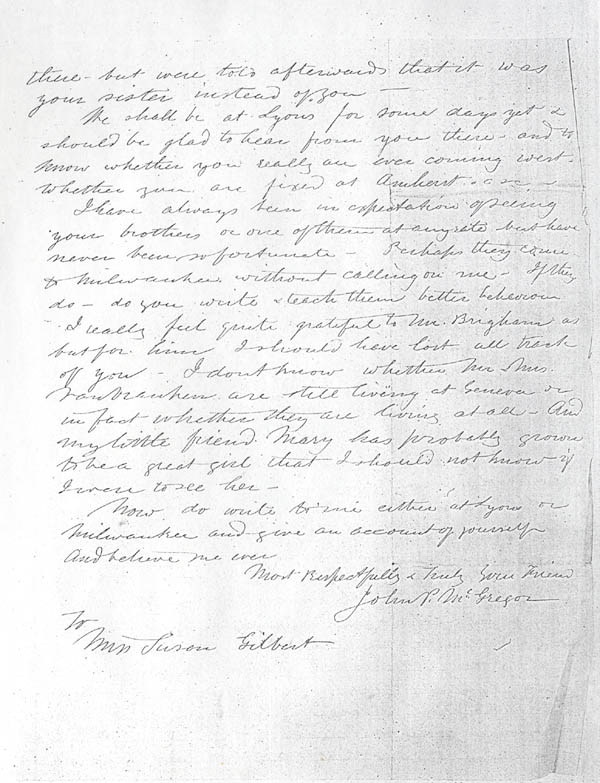 there - but were told afterwards that it was
your sister instead of you -
We shall be at Lyons for some days yet &
should be glad to hear from you there - and to
know whether you really are ever coming west
whether you are fixed at Amherst
I have always been in expectation of seeing
your brothers or one of them at any rate but have
never been so fortunate - Perhaps they come
to Milwaukee without calling on me - If they
do - do you write & teach them better behaviour
I really feel quite grateful to Mr. Brigham as
but for him I should have lost all track
of you - I don't know whether Mr & Mrs.
Van Vranken are still living at Geneva or
in fact whether they are living at all - And
my little friend Mary has probably grown
to be a great girl that I should not know if
I were to see her -
Now do write to me either at Lyons or
Milwaukee and give an account of yourself
And believe me ever
Most Respectfully & Truly Your Friend
John P. McGregor
To
Miss Susan Gilbert